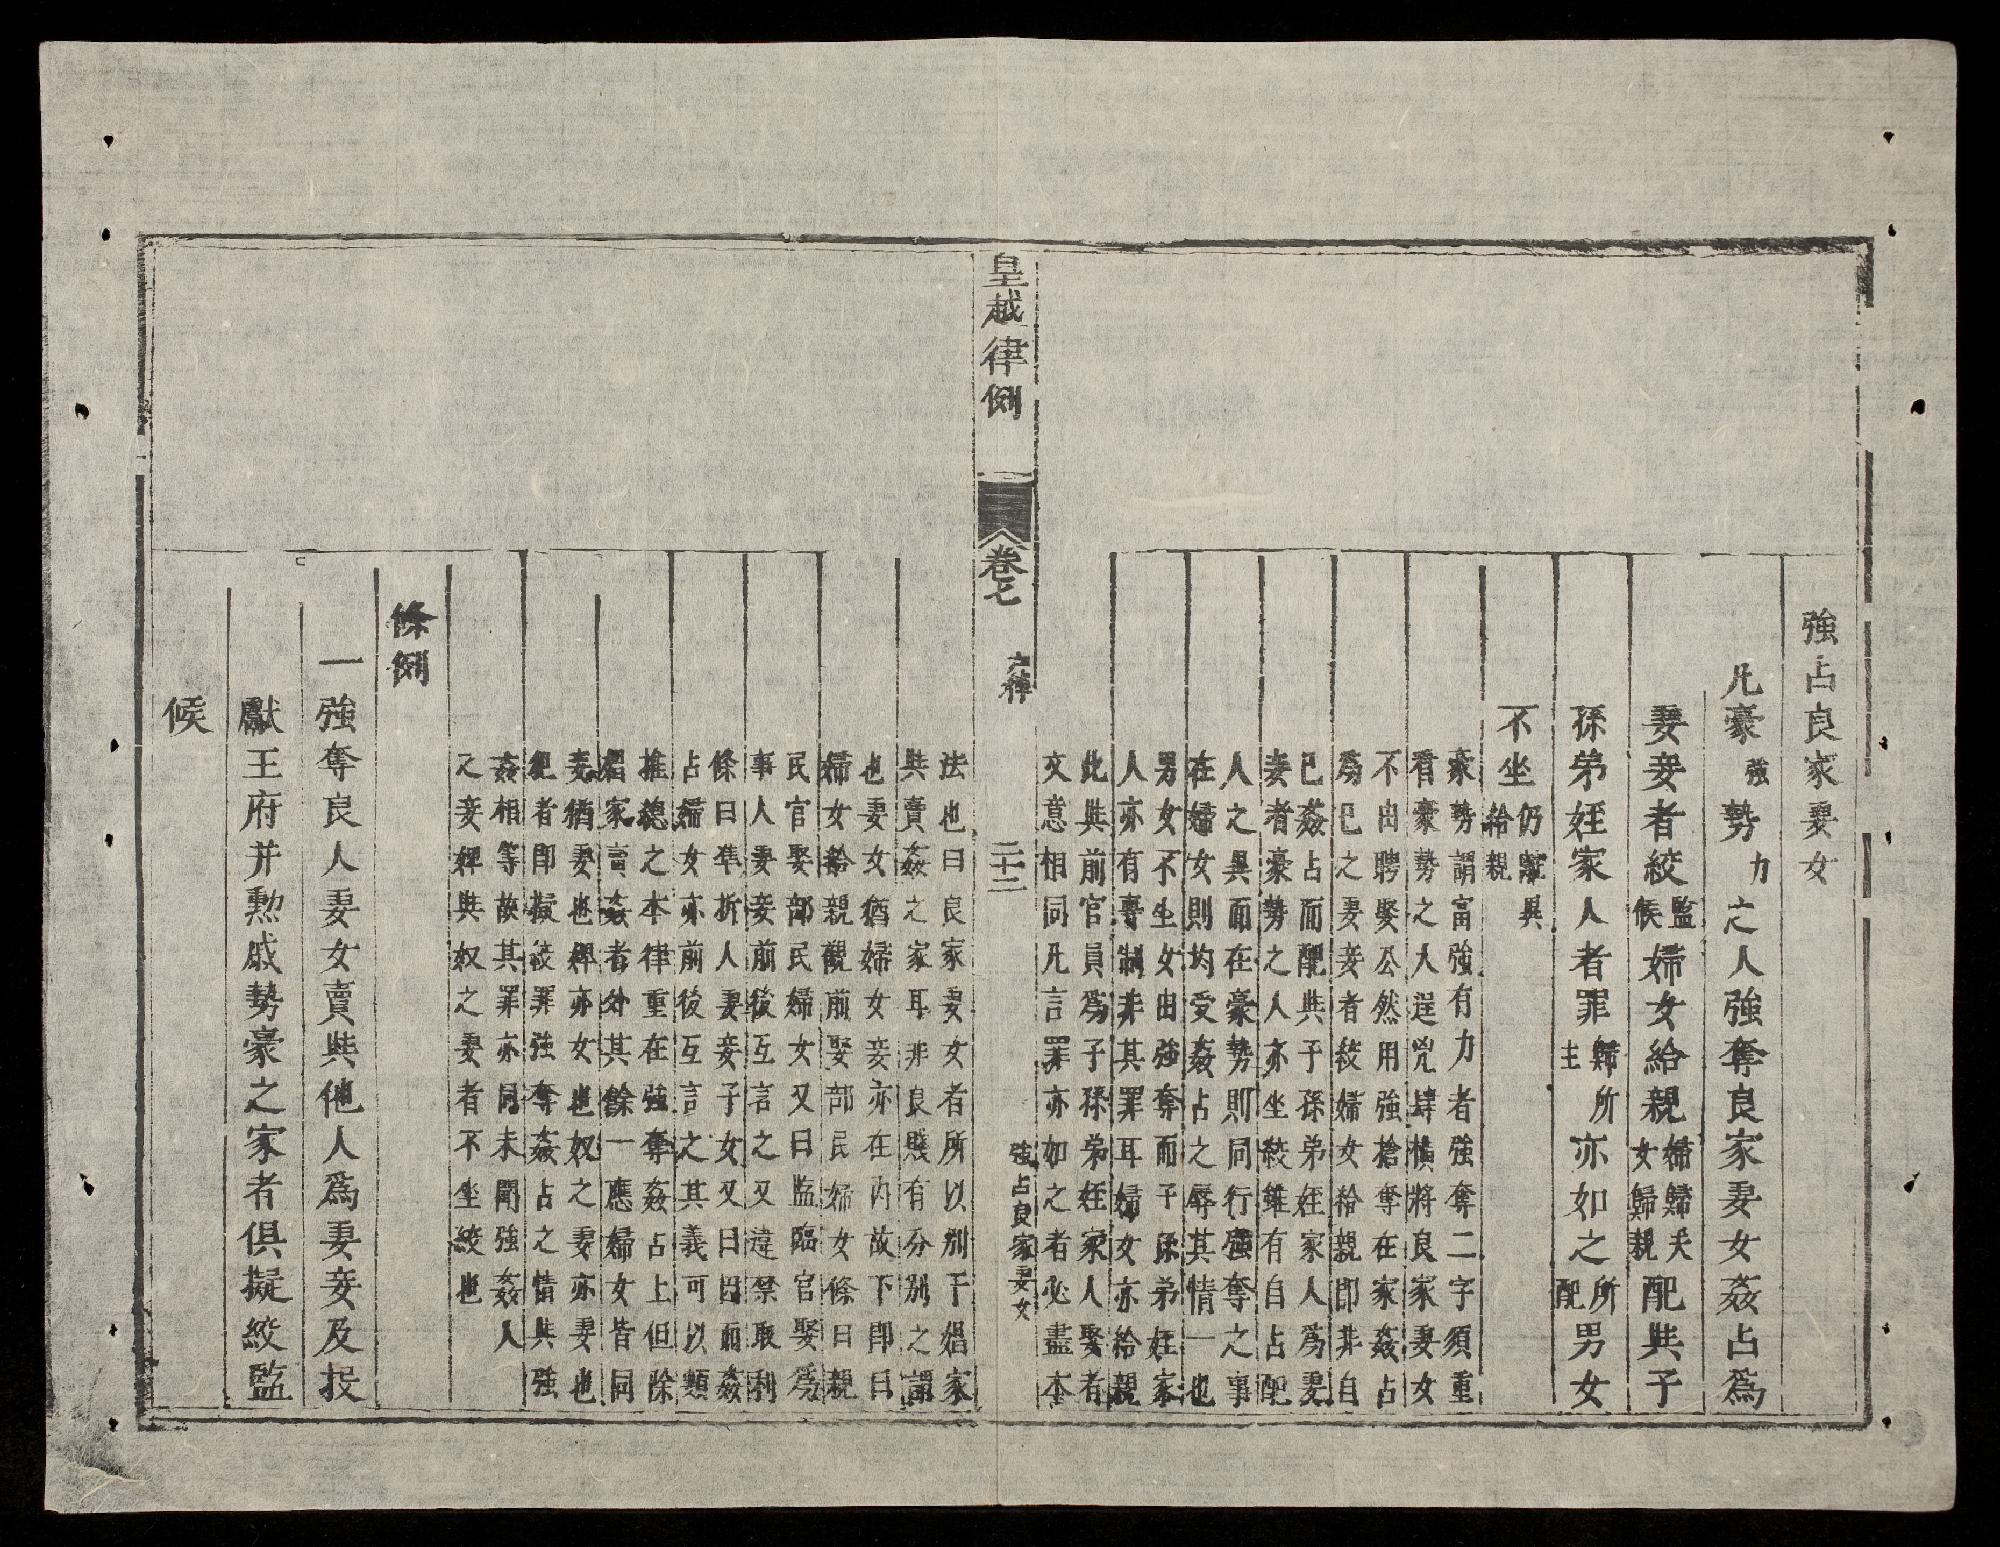 強占良家妻女
凡豪強勢力之人強奪良家妻女姦占爲
妻妾者絞監候婦女給親婦歸夫女歸親配與子
孫弟姪家人者罪歸所主亦如之所配男女
不坐仍離異給親
豪勢謂富強有力者強奪二字須重
看豪勢之人逞兇肆橫將良家妻女
不由聘娶公然用強搶奪在家姦占
爲己之妻妾者絞婦女給親即非自
己姦占而配與子孫弟姪家人爲妻
妾者豪勢之人亦坐絞雖有自占配
人之異而在豪勢則同行強奪之事
在婦女則均受姦占之辱其情一也
男女不坐女由強奪而子孫弟姪家
人亦有專制非其罪耳婦女亦給親
此與前官員爲子孫弟姪家人娶者
文意相同凡言罪亦如之者必盡本
皇越律例
卷七
二十三
強占良家妻女
法也曰良家妻女者所以別于娼家
與賣姦之家耳非良賤有分別之謂
也妻女猶婦女妾亦在內故下即曰
婦女給親觀前娶部民婦女條曰親
民官娶部民婦女又曰監臨官娶爲
事人妻妾前後互言之又違禁取利
條曰準折人妻妾子女又曰因而姦
占婦女亦前後互言之其義可以類
推總之本律重在強奪姦占上但除
娼家賣姦者外其餘一應婦女皆同
妻猶妻也婢亦女也奴之妻亦妻也
犯者即擬絞罪強奪姦占之情與強
姦相等故其罪亦同未聞強姦人
之妾婢與奴之妻者不坐絞也
條例
一強奪良人妻女賣與他人爲妻妾及投
獻王府并勲戚勢豪之家者俱擬絞監
候